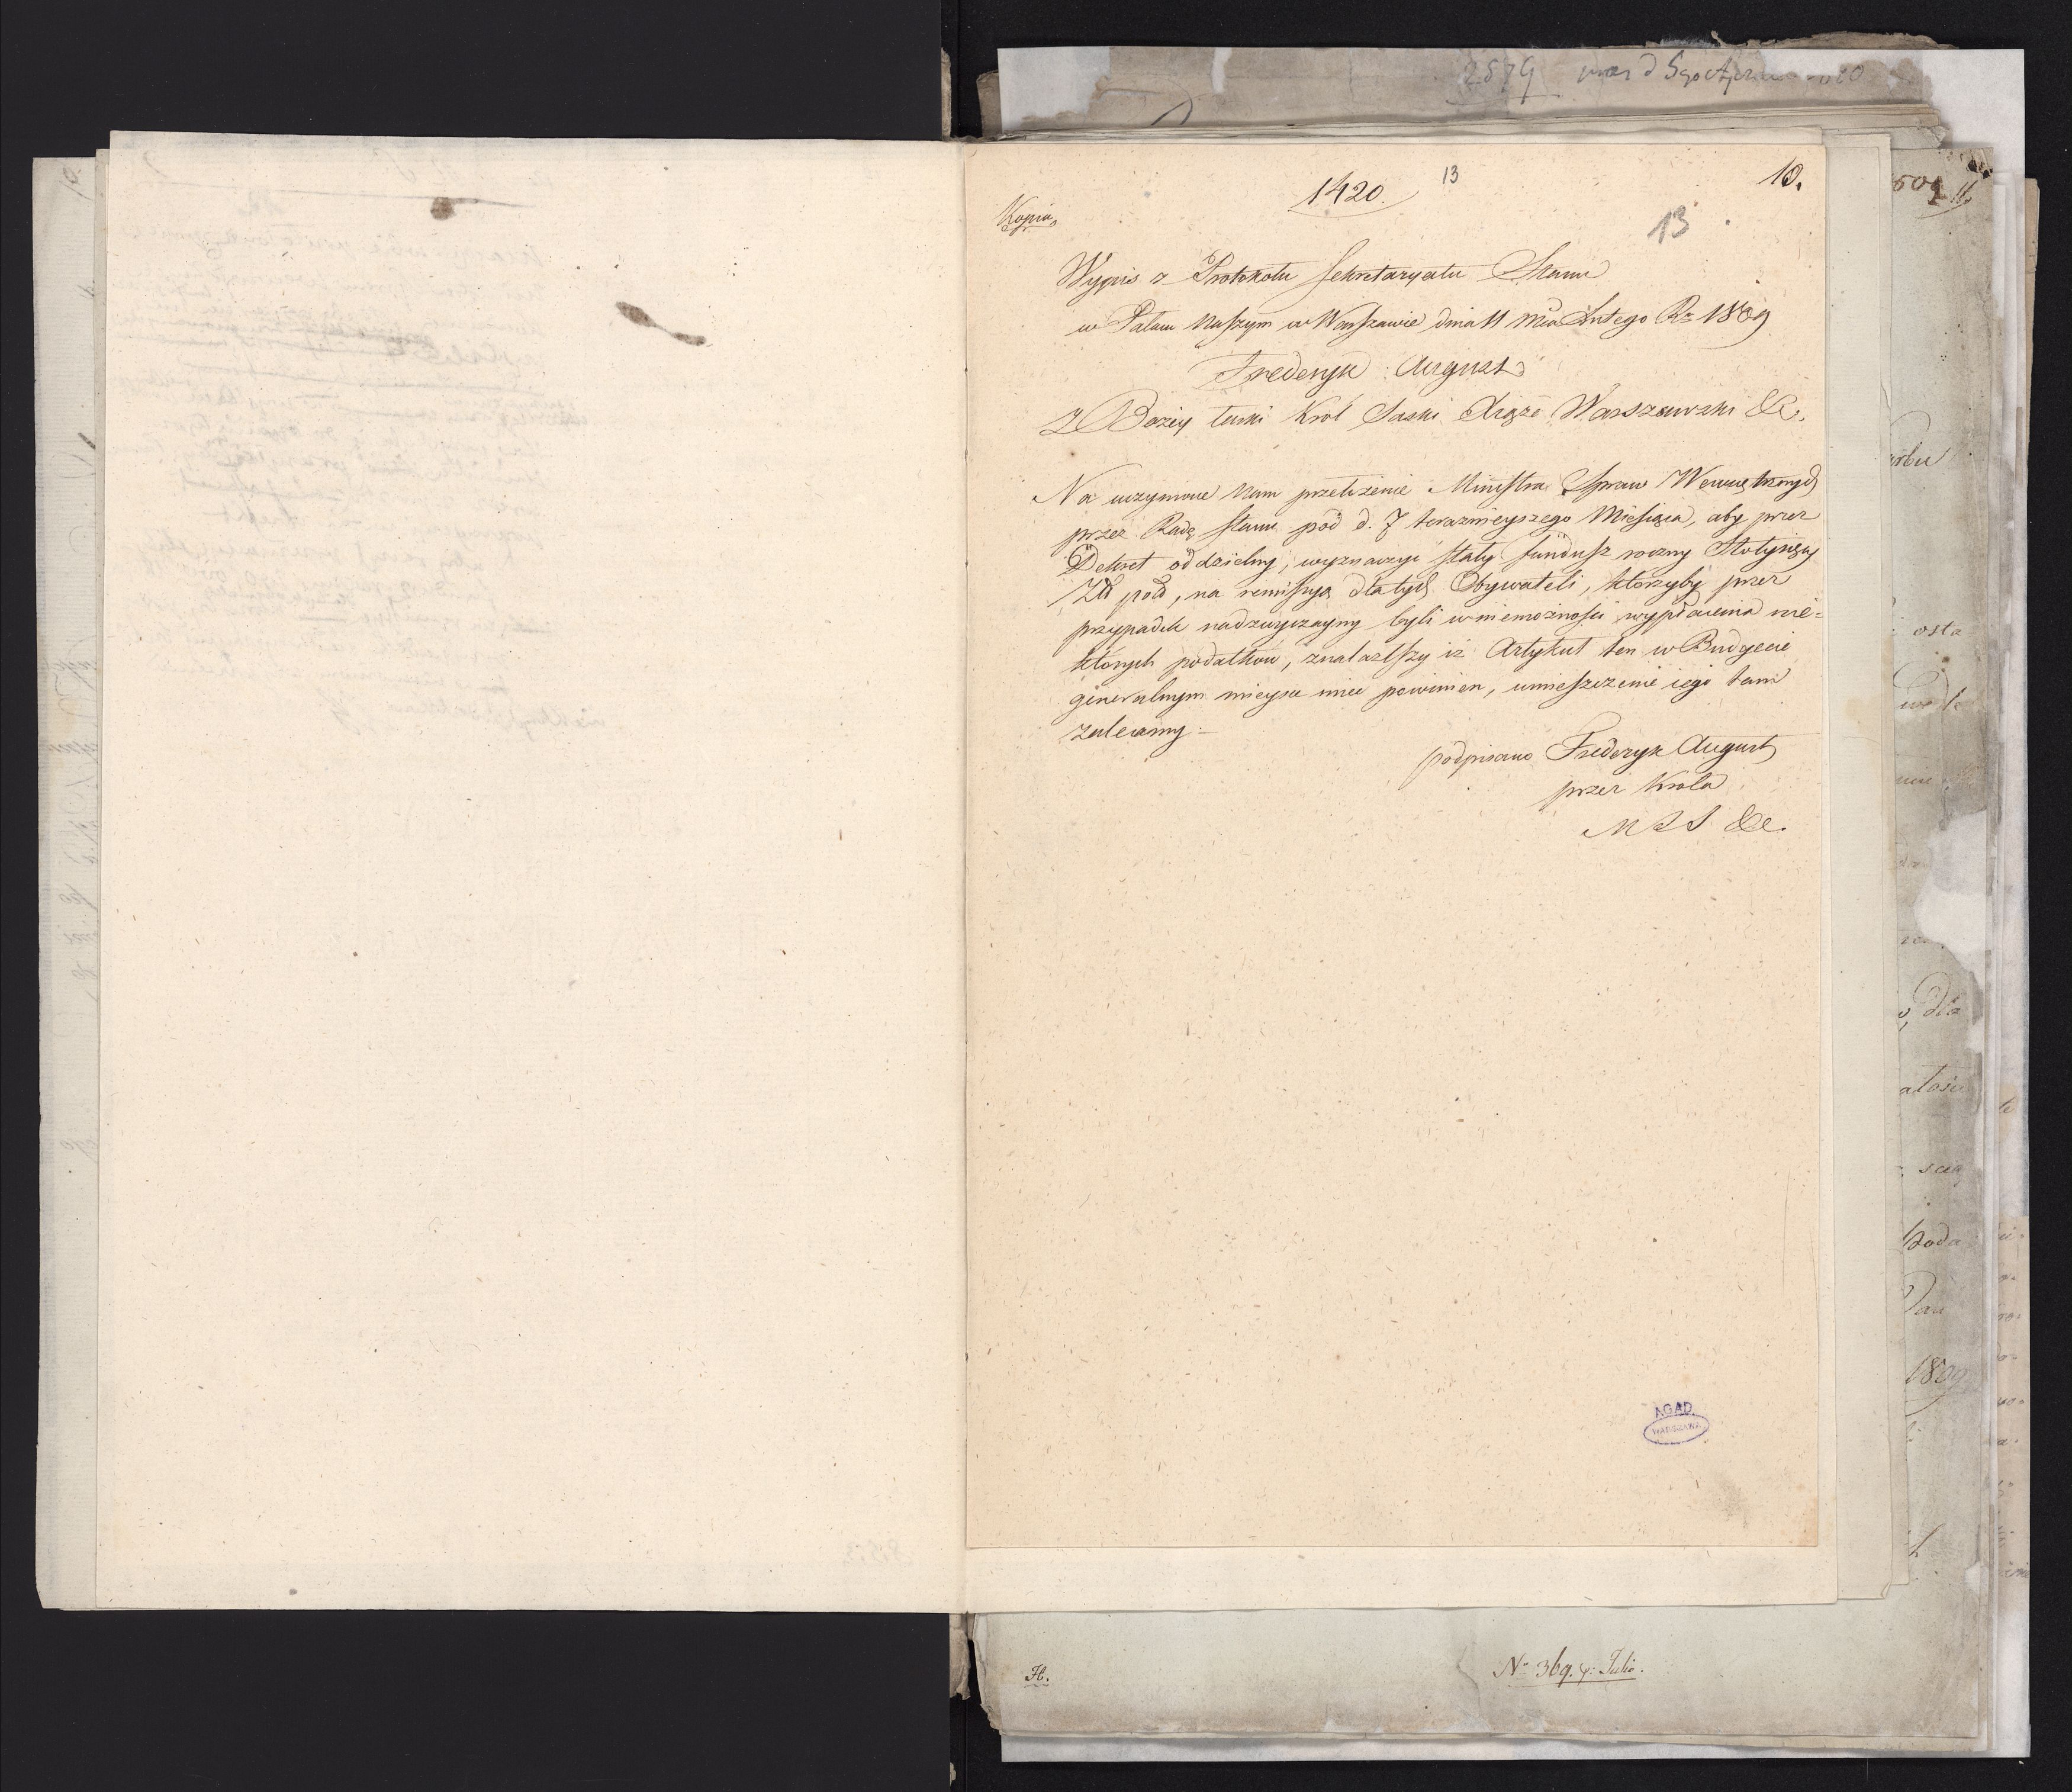 2879
1420.
13
10.
13
Kopia
Wypis z Protokołu Sekretaryatu Stanu
w Pałacu Naszym w Warszawie dnia 11 Mca Lutego Ru 1809
Frederyk August
Z Bożey łaski Krol Saski Xiąże Warszawski &c.
Na uczynione Nam przełożenie Ministra Spraw Wewnętrznych
przez Radę Stanu pod d. 7 teraznieyszego Miesiąca, aby przez
Dekret oddzielny, wyznaczyć stały fundusz roczny Stotysięcy
Zł pol, na remissyą dla tych Obywateli, ktorzyby przez
przypadek nadzwyczayny byli w niemożności wypłacenia nie=
ktorych podatkow, znalazłszy iż Artykuł ten w Budgecie
gineralnym mieysce miec powinien, umieszczenie iego tam
zalecamy.
podpisano Frederyk August
przez Krola
M S S &c.
AGAD
WARSZAWA
No 369. Julio.